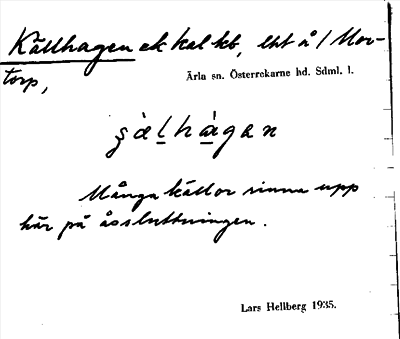 Källhagen ek kal kb, lht å / Mor-
torp,
Ärla sn. Österrekarne hd. Sdml. l.
ʂàlhàgan
Många källor rinna upp
här på åssluttningen.
Lars Hellberg 1935.